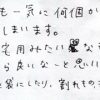 も一気に何個か
しまいます。
定用みたい な
ら良いなと思い
袋にしたり、割れもの